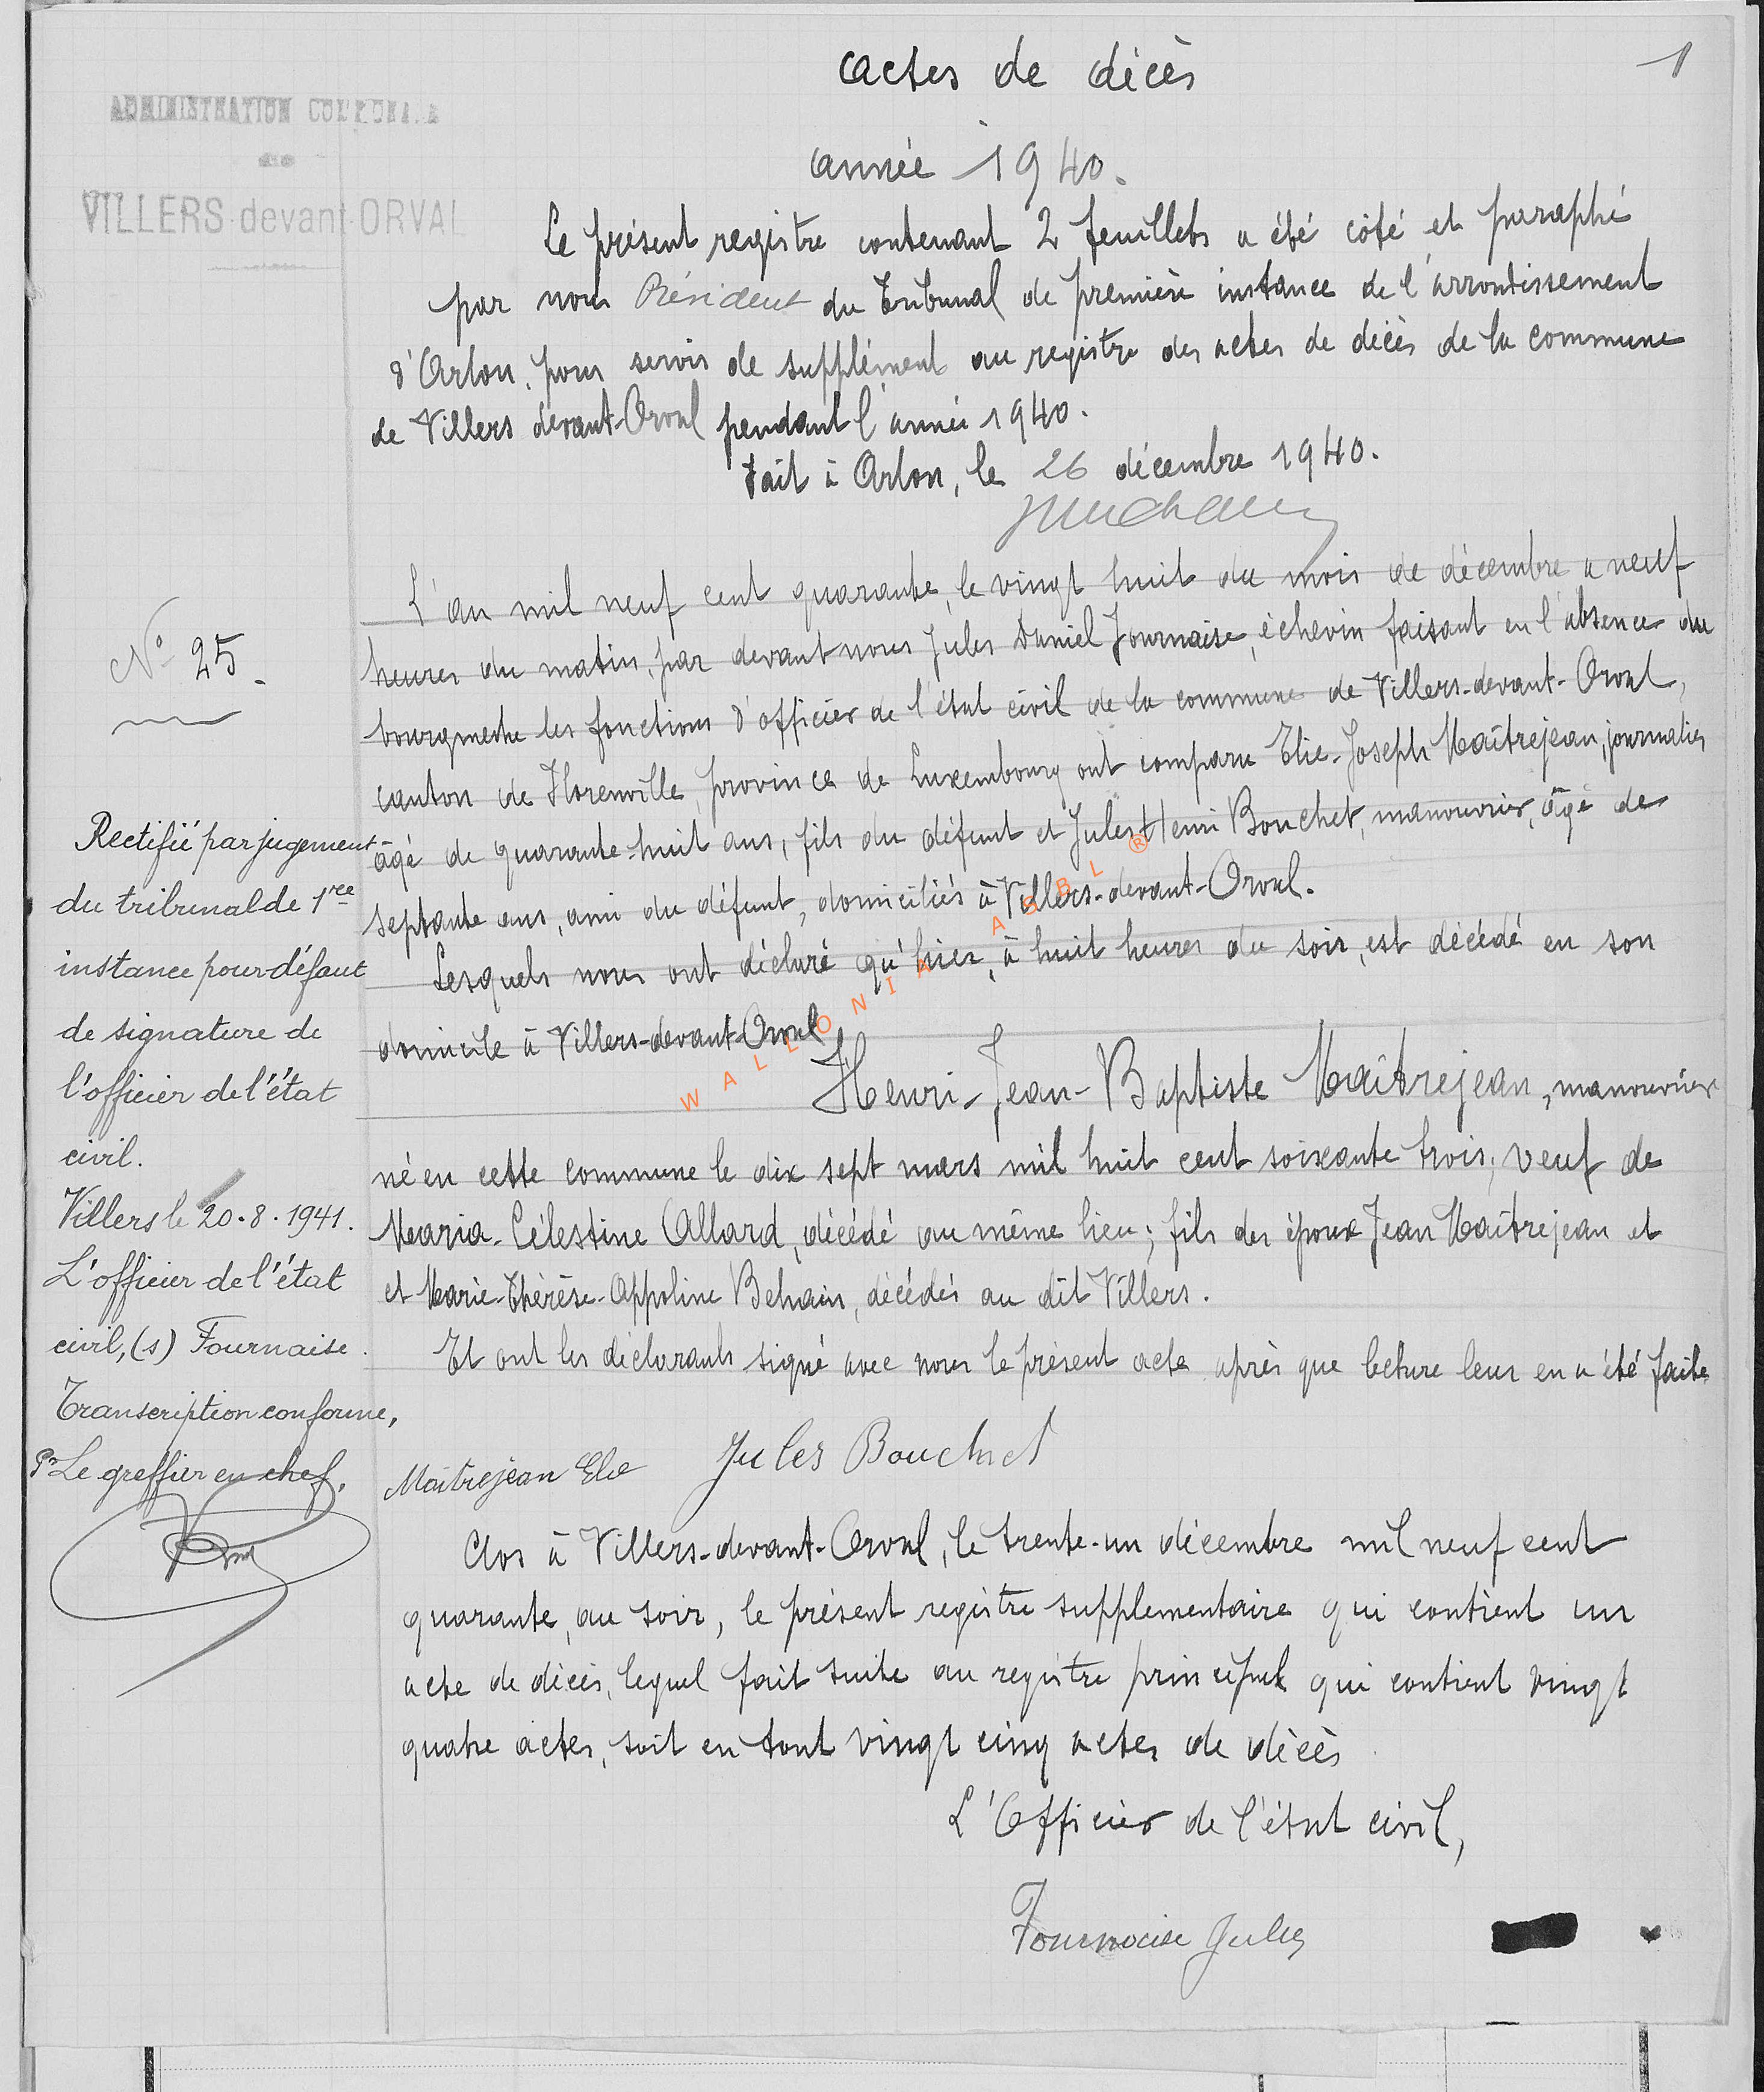 actes de décès
1
ADMINISTRATION COMMUNALE
de
VILLERS-devant-ORVAL
année 1940.
Le présent registre contenant 2 feuillets a été côté et paraphé
par nous Président du Tribunal de première instance de l'arrondissement
d'Arlon, pour servir de supplément au registre des actes de décès de la commune
de Villers devant-Orval pendant l'année 1940.
Fait à Arlon, le 26 décembre 1940.
N° 25.
L'an mil neuf cent quarante, le vingt huit du mois de décembre a neuf
heures du matin, par devant nous Jules Daniel Fournaise, échevin faisant en l'absence du
bourgmestre les fonctions d'officier de l'état civil de la commune de Villers-devant-Orval,
canton de Florenville, province de Luxembourg ont comparu Elie-Joseph Maîtrejean, journalier
âgé de quarante-huit ans, fils du défunt et Jules Henri Bouchet, manouvrier, âgé de
septante ans, ami du défunt, domiciliés à Villers-devant-Orval.
Lesquels nous ont déclaré qu'hier, à huit heures du soir, est décédé en son
domicile à Villers-devant-Orval
Henri-Jean-Baptiste Maîtrejean, manouvrier
né en cette commune le dix sept mars mil huit cent soixante trois, veuf de
Maria-Célestine Allard, décédé au même lieu; fils des époux Jean Maîtrejean et
et Marie-Thérèse-Appoline Behain, décédés au dit Villers.
Et ont les déclarants signé avec nous le présent acte après que lecture leur en a été faite
Maîtrejean Elie Jules Bouchet
Rectifié par jugement
du tribunal de 1re
instance pour défaut
de signature de
l'officier de l'état
civil.
Villers le 20.8.1941.
L'officier de l'état
civil, (s) Fournaise.
Transcription conforme,
Pr Le greffier en chef,
Clos à Villers-devant-Orval, le trente-un décembre mil neuf cent
quarante, au soir, le présent registre supplementaire qui contient un
acte de décès, lequel fait suite au registre principal qui contient vingt
quatre actes, soit en tout vingt cinq actes de décès
L'Officier de l'état civil,
Fournaise Jules
WALLONIA ASBL ®